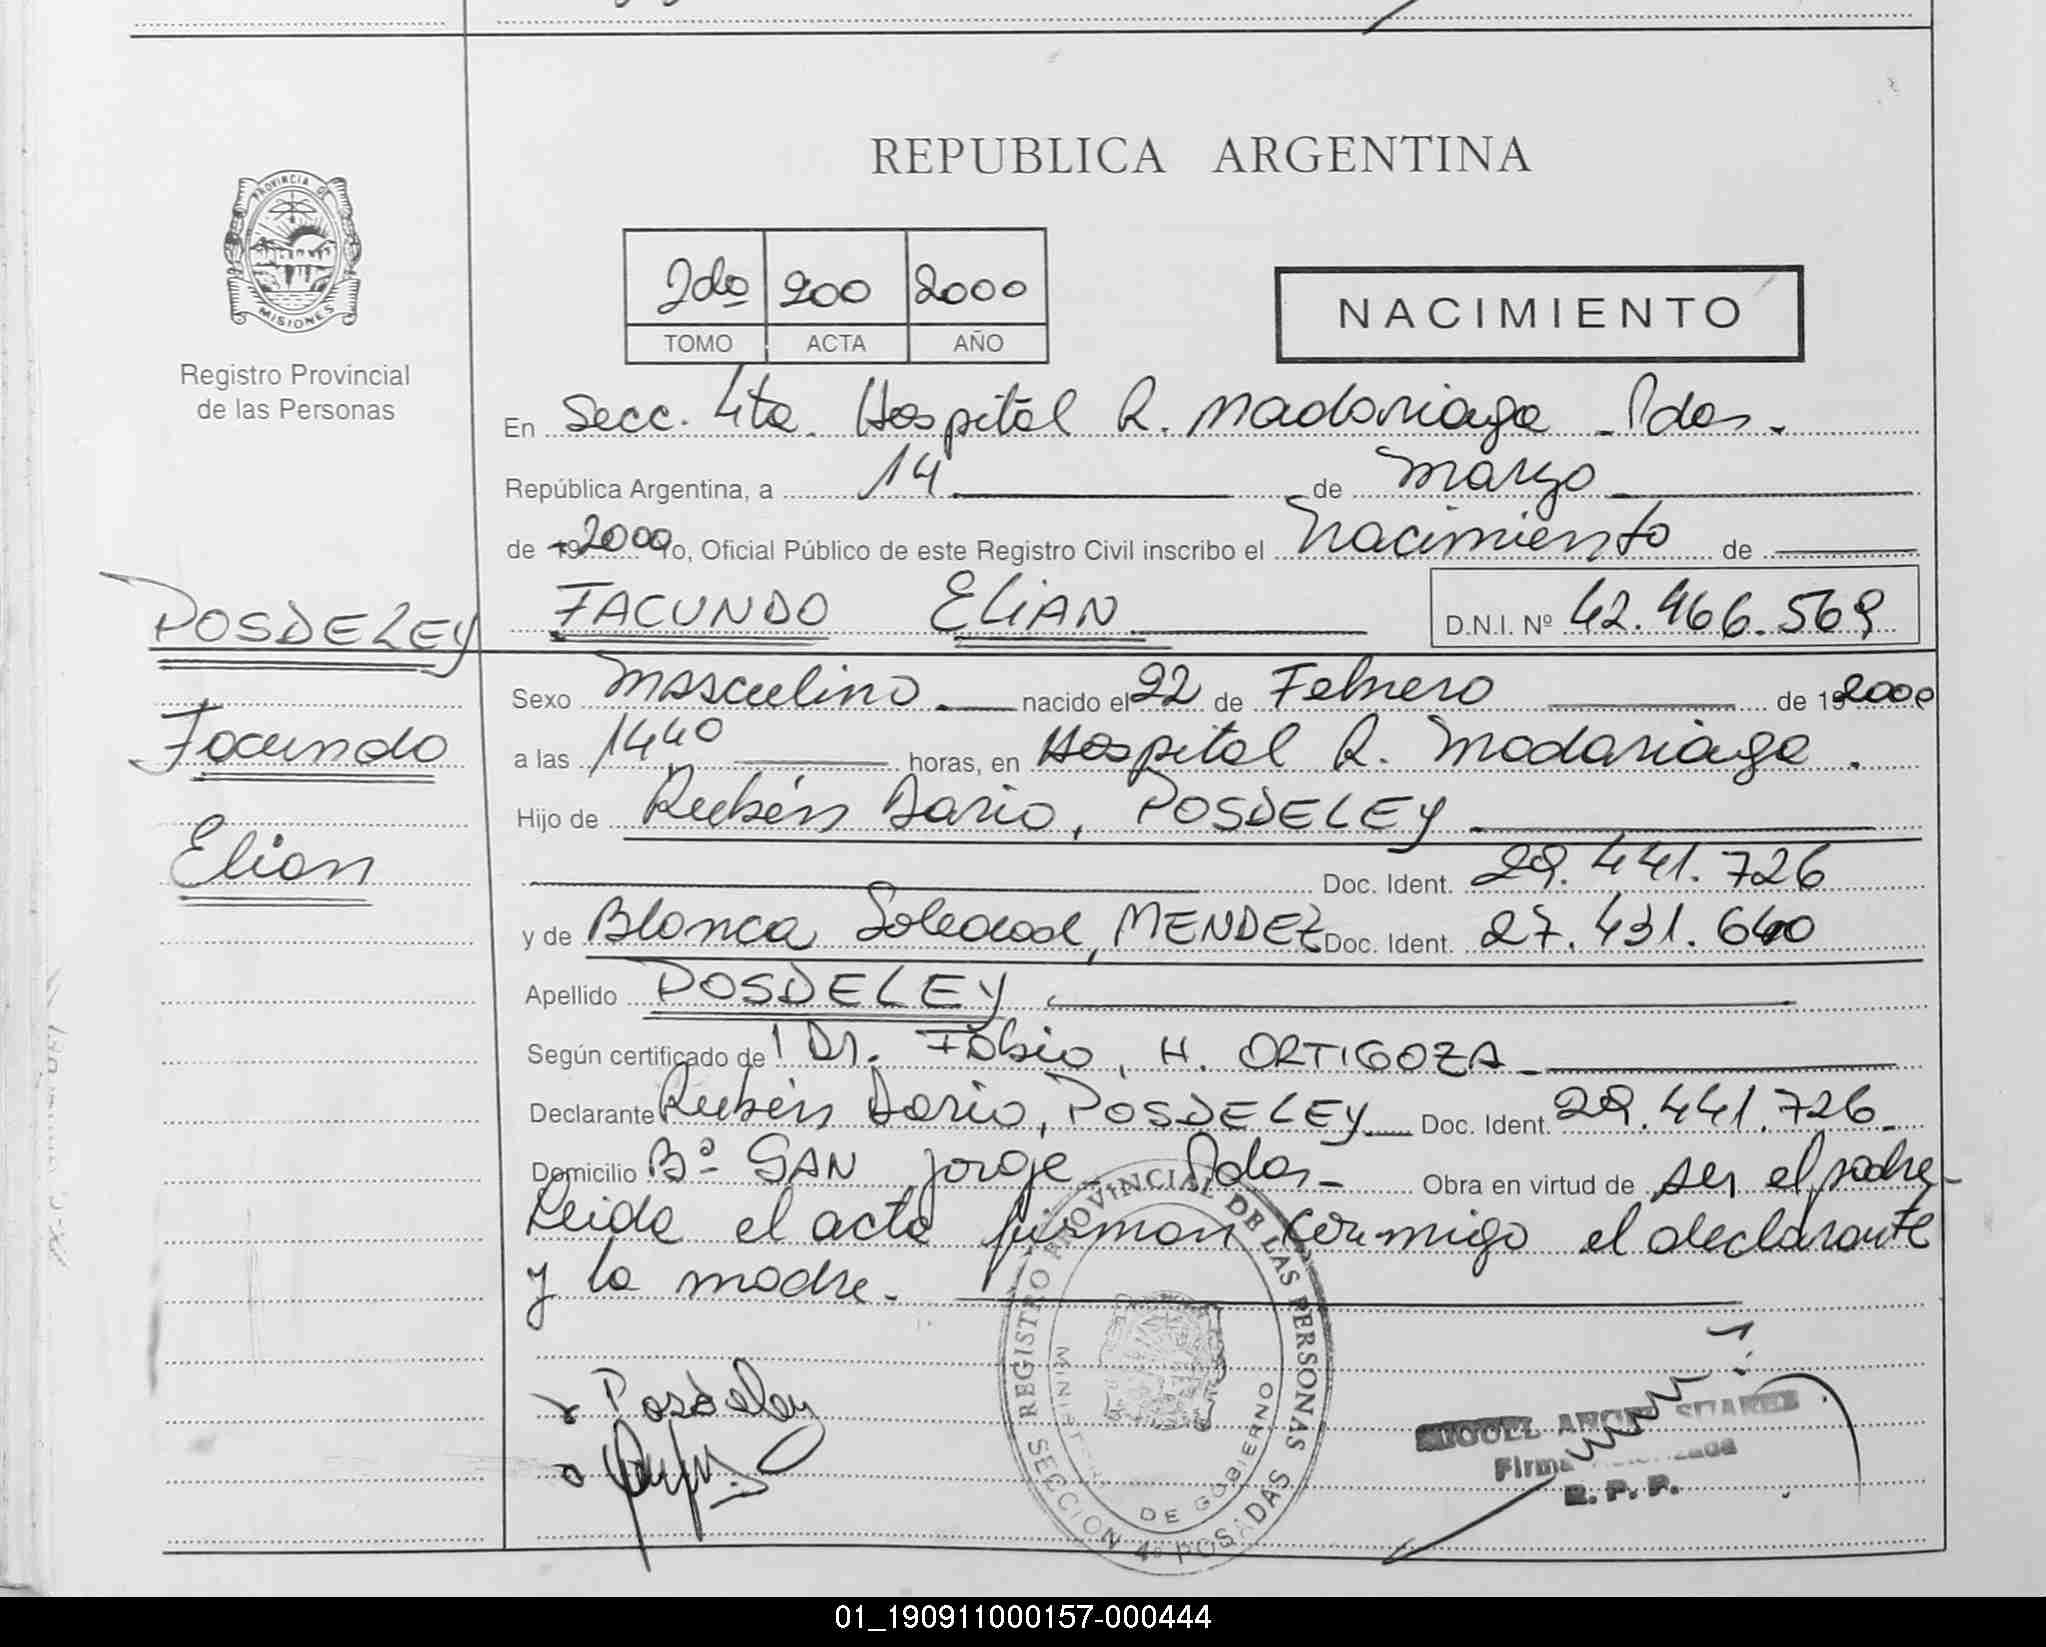 REPUBLICA ARGENTINA
PROVINCIA DE MISIONES
Registro Provincial
de las Personas
2do 200 2000
TOMO ACTA AÑO
NACIMIENTO
En Secc. 4ta. Hospital R. Madariaga - Pdas.
República Argentina, a 14 de Marzo
de 2000 Yo, Oficial Público de este Registro Civil inscribo el Nacimiento de
POSDELEY
Facundo
Elian
FACUNDO ELIAN D.N.I. Nº 42.466.569
Sexo Masculino nacido el 22 de Febrero de 192000
a las 1440 horas, en Hospital R. Madariaga.
Hijo de Rubén Dario, POSDELEY
Doc. Ident. 29.441.726
y de Blanca Soledad, MENDEZ Doc. Ident. 27.431.640
Apellido POSDELEY
Según certificado de Dr. Fabio, H. ORTIGOZA
Declarante Rubén Dario, POSDELEY Doc. Ident. 29.441.726
Domicilio Bº SAN jorge - Pdas - Obra en virtud de ser el padre-
Leida el acta firman conmigo el declarante
y la madre.-
Posdeley
REGISTRO PROVINCIAL DE LAS PERSONAS
MINISTERIO DE GOBIERNO
SECCION 4º POSADAS
MIGUEL ANGEL SUAREZ
Firma Autorizada
R. P. P.
01_190911000157-000444